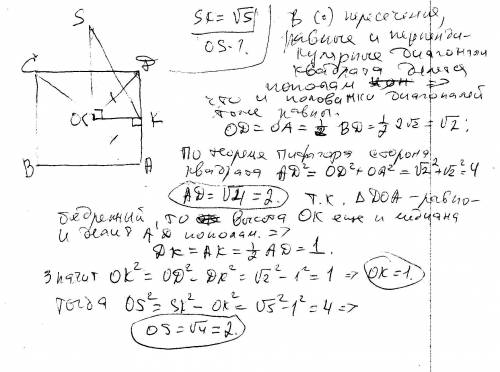 S
SK = √5
OS - ?
C
D
O
K
B
A
В (·) пересечения,
равные и перпенди-
кулярные диагонали
квадрата делятся
пополам =>
что и половинки диагоналей
тоже равны.
OD = OA = ½ BD = ½ 2√2 = √2;
По теореме Пифагора сторона
квадрата AD² = OD² + OA² = √2² + √2² = 4
AD = √4 = 2. Т.К. ΔDOA - равно-
бедренный, то высота OK еще и медиана
и делит AD пополам. =>
DK = AK = ½ AD = 1.
Значит OK² = OD² - DK² = √2² - 1² = 1 => OK = 1.
Тогда OS² = SK² - OK² = √5² - 1² = 4 =>
OS = √4 = 2.